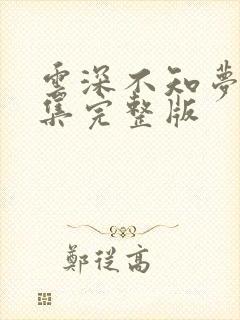 雲深不知夢
集完整版
鄭從高